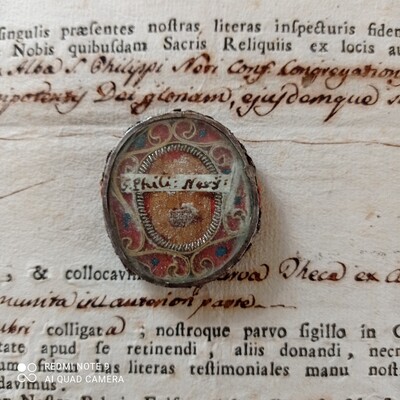 singulis præsentes nostras literas inspecturis fidem
Nobis quibusdam Sacris Reliquiis ex locis au
Alba S. Philippi Nerii Conf. Congregation
Dei gloriam, ejusdemque
S. Phili: Nerij.
, & collocav
parva Theca ex
munita in anteriori parte
colligata ; nostroque parvo sigillo in C
tate apud se retinendi, aliis donandi, necn
literas testimoniales manu nost
davimus.
REDMI NOTE 9
AI QUAD CAMERA